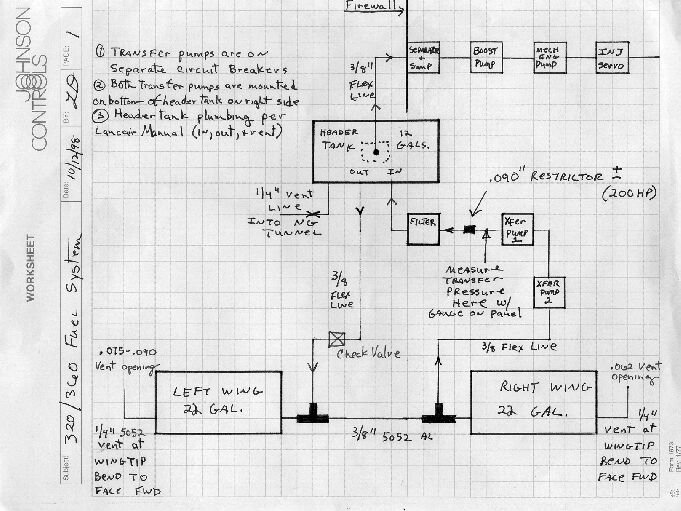 JOHNSON
CONTROLS
WORKSHEET
Subject: 320/360 Fuel System
Date: 10/12/98
By:
PAGE: 1
① TRANSFER pumps are on
Separate circuit Breakers
② Both transfer pumps are mounted
on bottom of header tank on right side
③ Header tank plumbing per
Lancair Manual (in, out, + vent)
Firewall
3/8"
FLEX
LINE
SEPARATE
+
Sump
BOOST
PUMP
MECH
ENG
PUMP
INJ
SERVO
HEADER
TANK
12
GALS.
OUT IN
1/4" vent
LINE
INTO NG
TUNNEL
.090" RESTRICTOR ±
(200 HP)
FILTER
XFER
PUMP
1
XFER
PUMP
2
MEASURE
TRANSFER
PRESSURE
HERE W/
GAUGE ON PANEL
3/8
FLEX
LINE
3/8 FLEX LINE
Check Valve
.075-.090
Vent opening
LEFT WING
22 GAL.
RIGHT WING
22 GAL.
.062 Vent
opening
3/8" 5052 AL
1/4" 5052
vent at
WINGTIP
BEND TO
FACE FWD
1/4"
vent at
WINGTIP
BEND TO
FACE FWD